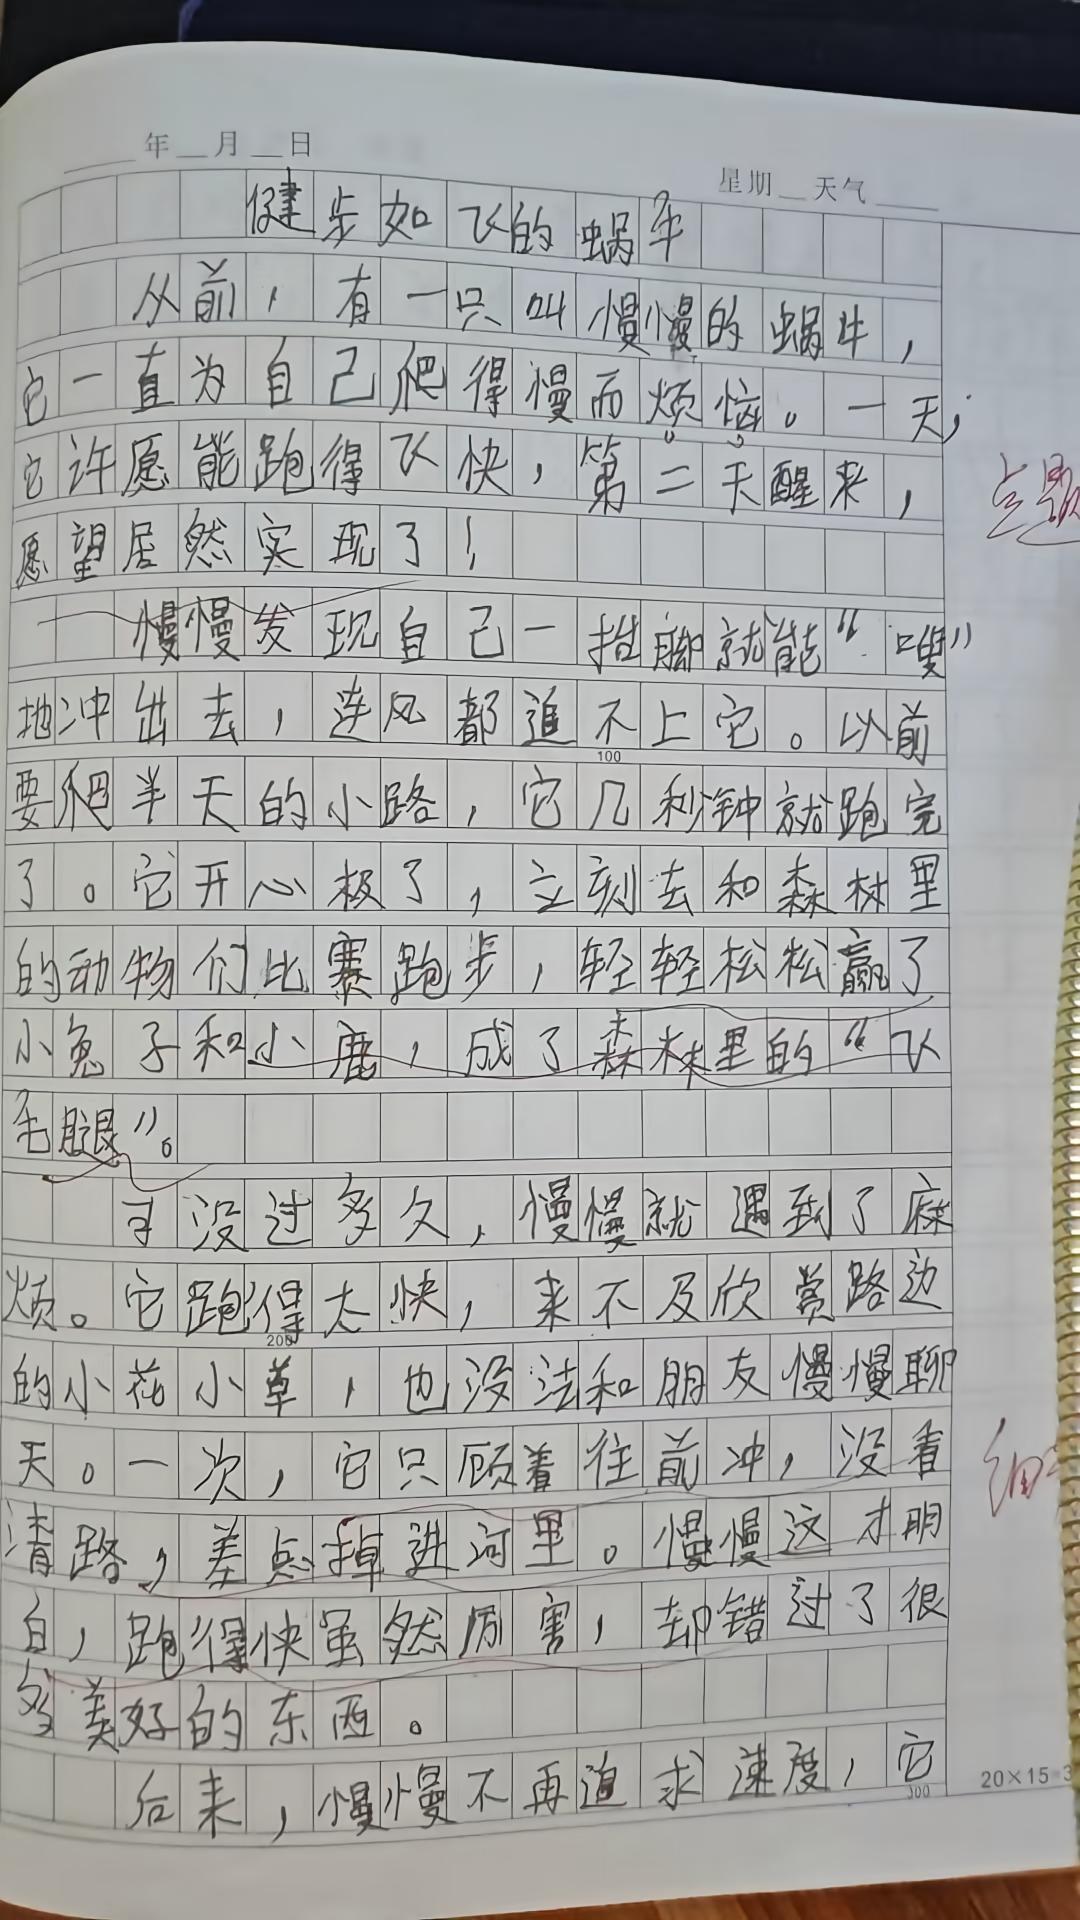 年 月 日
星期 天气
健步如飞的蜗牛
从前，有一只叫慢慢的蜗牛，
它一直为自己爬得慢而烦恼。一天，
它许愿能跑得飞快，第二天醒来，
愿望居然实现了！
慢慢发现自己一抬脚就能“嗖”
地冲出去，连风都追不上它。以前
100
要爬半天的小路，它几秒钟就跑完
了。它开心极了，立刻去和森林里
的动物们比赛跑步，轻轻松松赢了
小兔子和小鹿，成了森林里的“飞
毛腿”。
可没过多久，慢慢就遇到了麻
烦。它跑得太快，来不及欣赏路边
200
的小花小草，也没法和朋友慢慢聊
天。一次，它只顾着往前冲，没看
清路，差点掉进河里。慢慢这才明
白，跑得快虽然厉害，却错过了很
多美好的东西。
后来，慢慢不再追求速度，它
300
20×15
主题